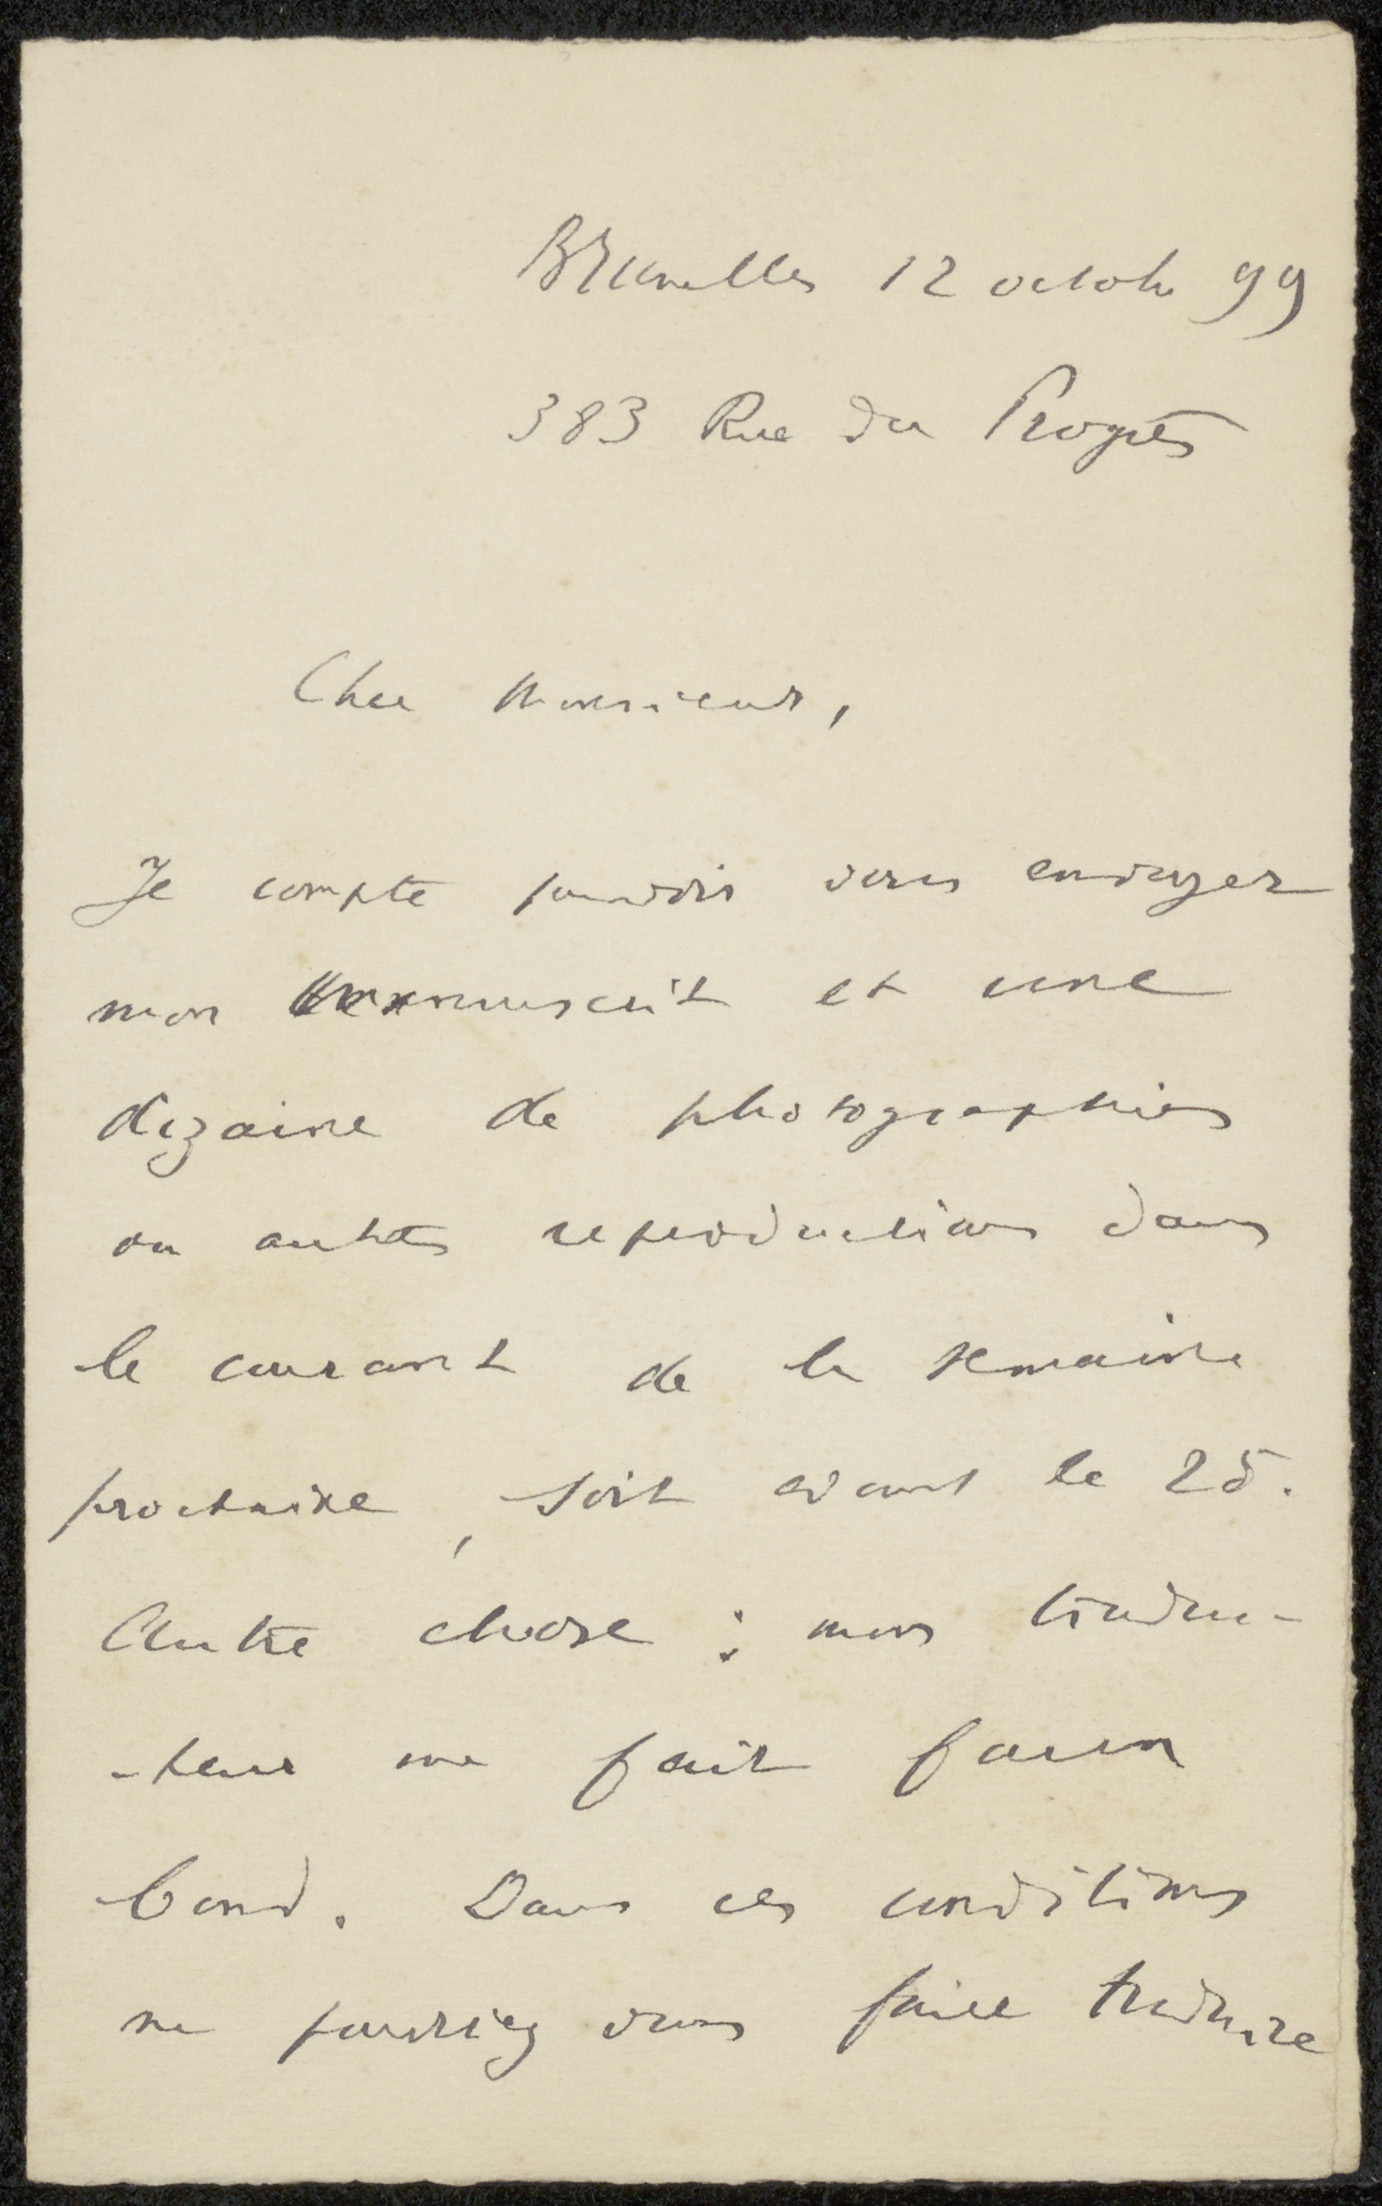 Bruxelles 12 octobre 99
383 Rue du Progrès
Cher Monsieur,
Je compte pouvoir vous envoyer
mon manuscrit et une
dizaine de photographies
ou autres reproductions dans
le courant de la semaine
prochaine, soit avant le 25.
Autre chose : mon traduc-
-teur me fait faux
bond. Dans ces conditions
ne pourriez vous faire traduire